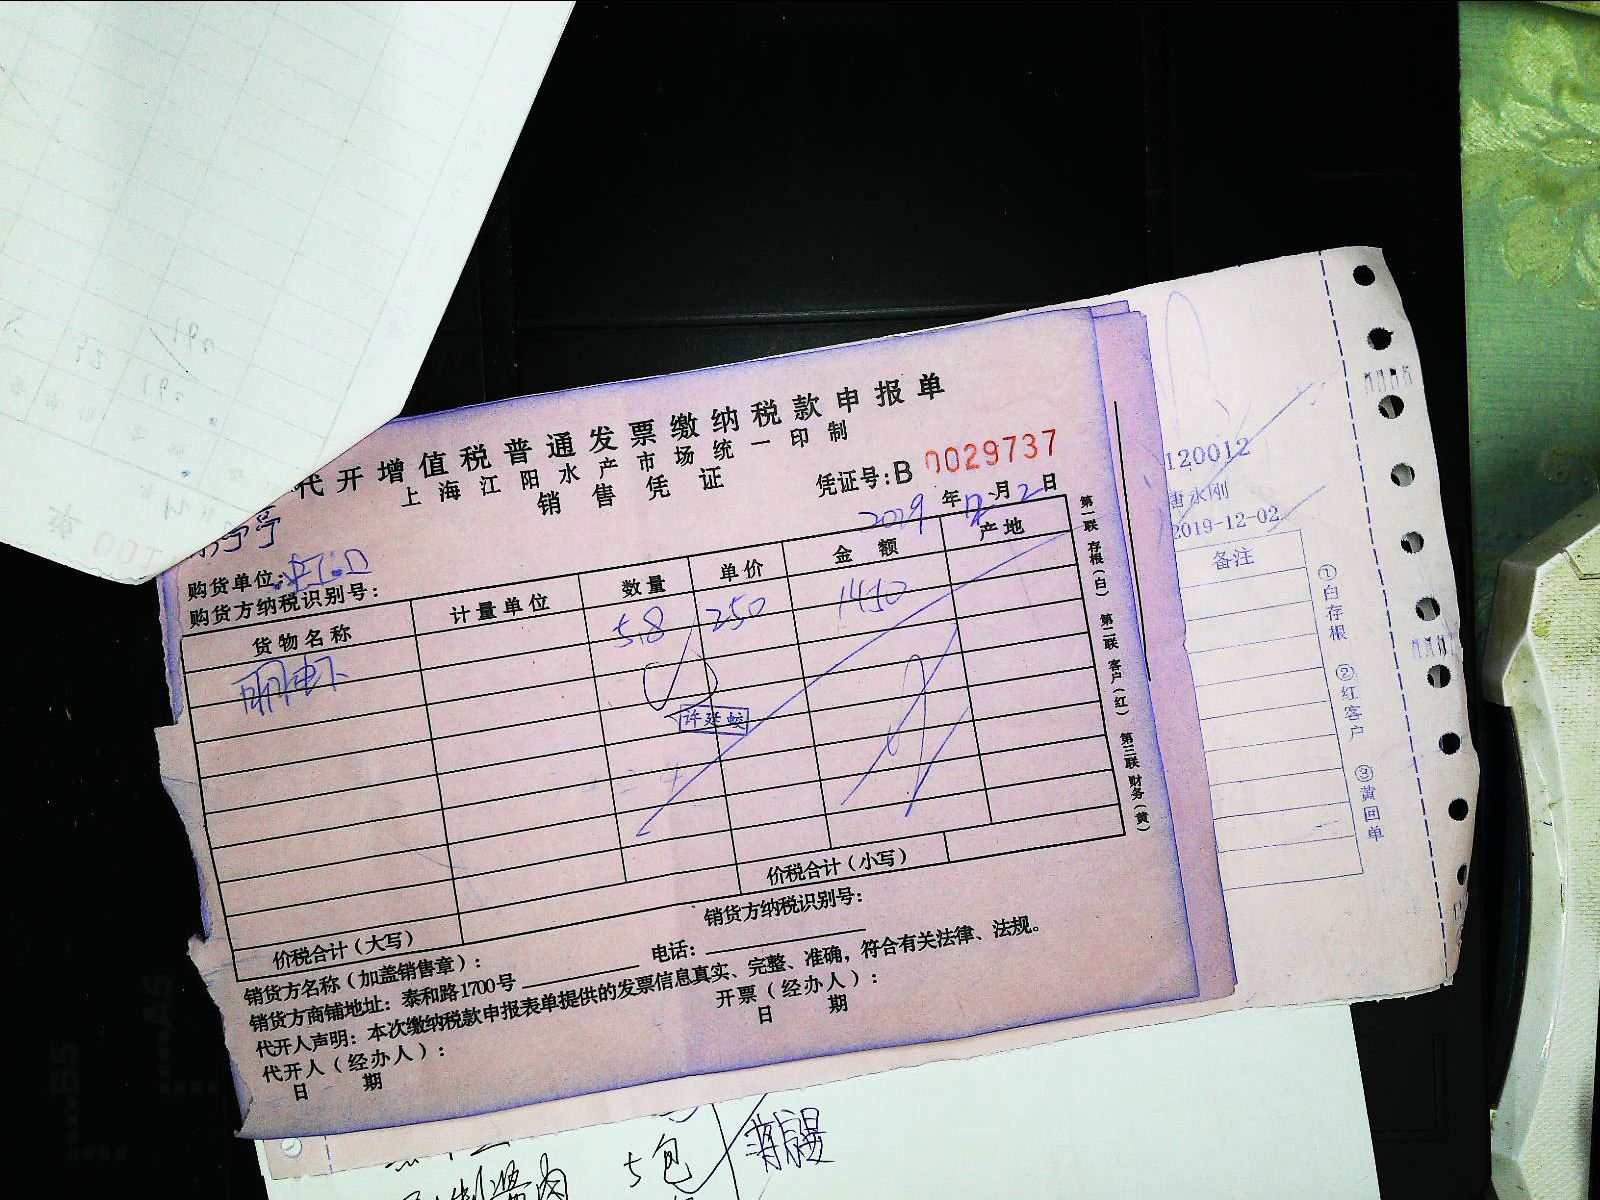 代开增值税普通发票缴纳税款申报单
上海江阳水产市场统一印制
销售凭证
凭证号:B 0029737
2019年12月2日
购货单位:虹口
购货方纳税识别号:
货物名称 计量单位 数量 单价 金额 产地
明虾 5.8 250 1450
许延蛟
价税合计(小写)
价税合计(大写)
销货方纳税识别号:
销货方名称(加盖销售章): 电话:
销货方商铺地址:泰和路1700号
代开人声明:本次缴纳税款申报表单提供的发票信息真实、完整、准确,符合有关法律、法规。
代开人(经办人): 开票(经办人):
日 期 日 期
第一联 存根(白) 第二联 客户(红) 第三联 财务(黄)
120012
唐永刚
2019-12-02
备注
①白存根 ②红客户 ③黄回单
5包
B5
A5